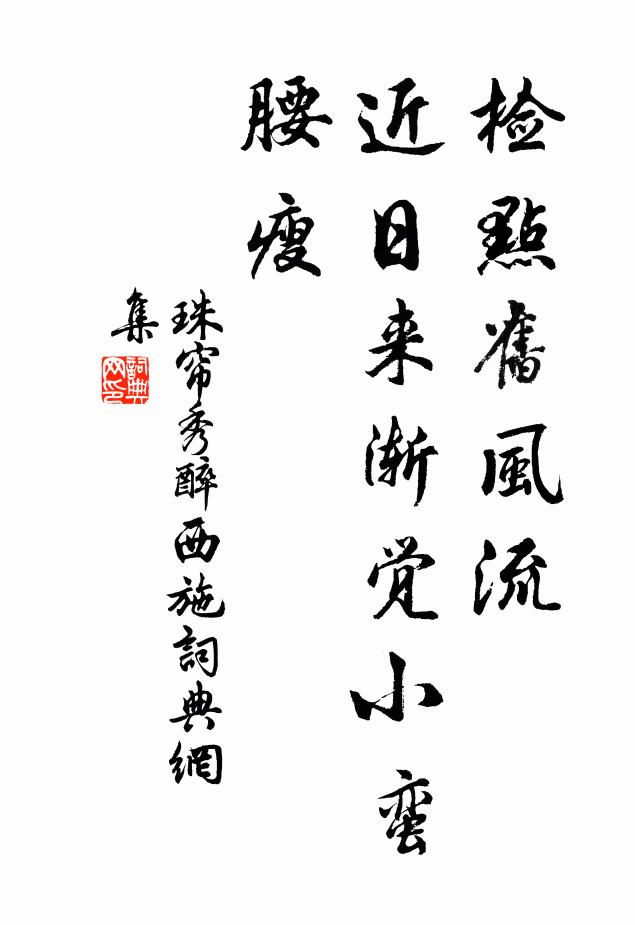 检點舊風流
近日来渐觉小蛮
腰瘦
珠帘秀醉西施詞典網
集
詞典
网印